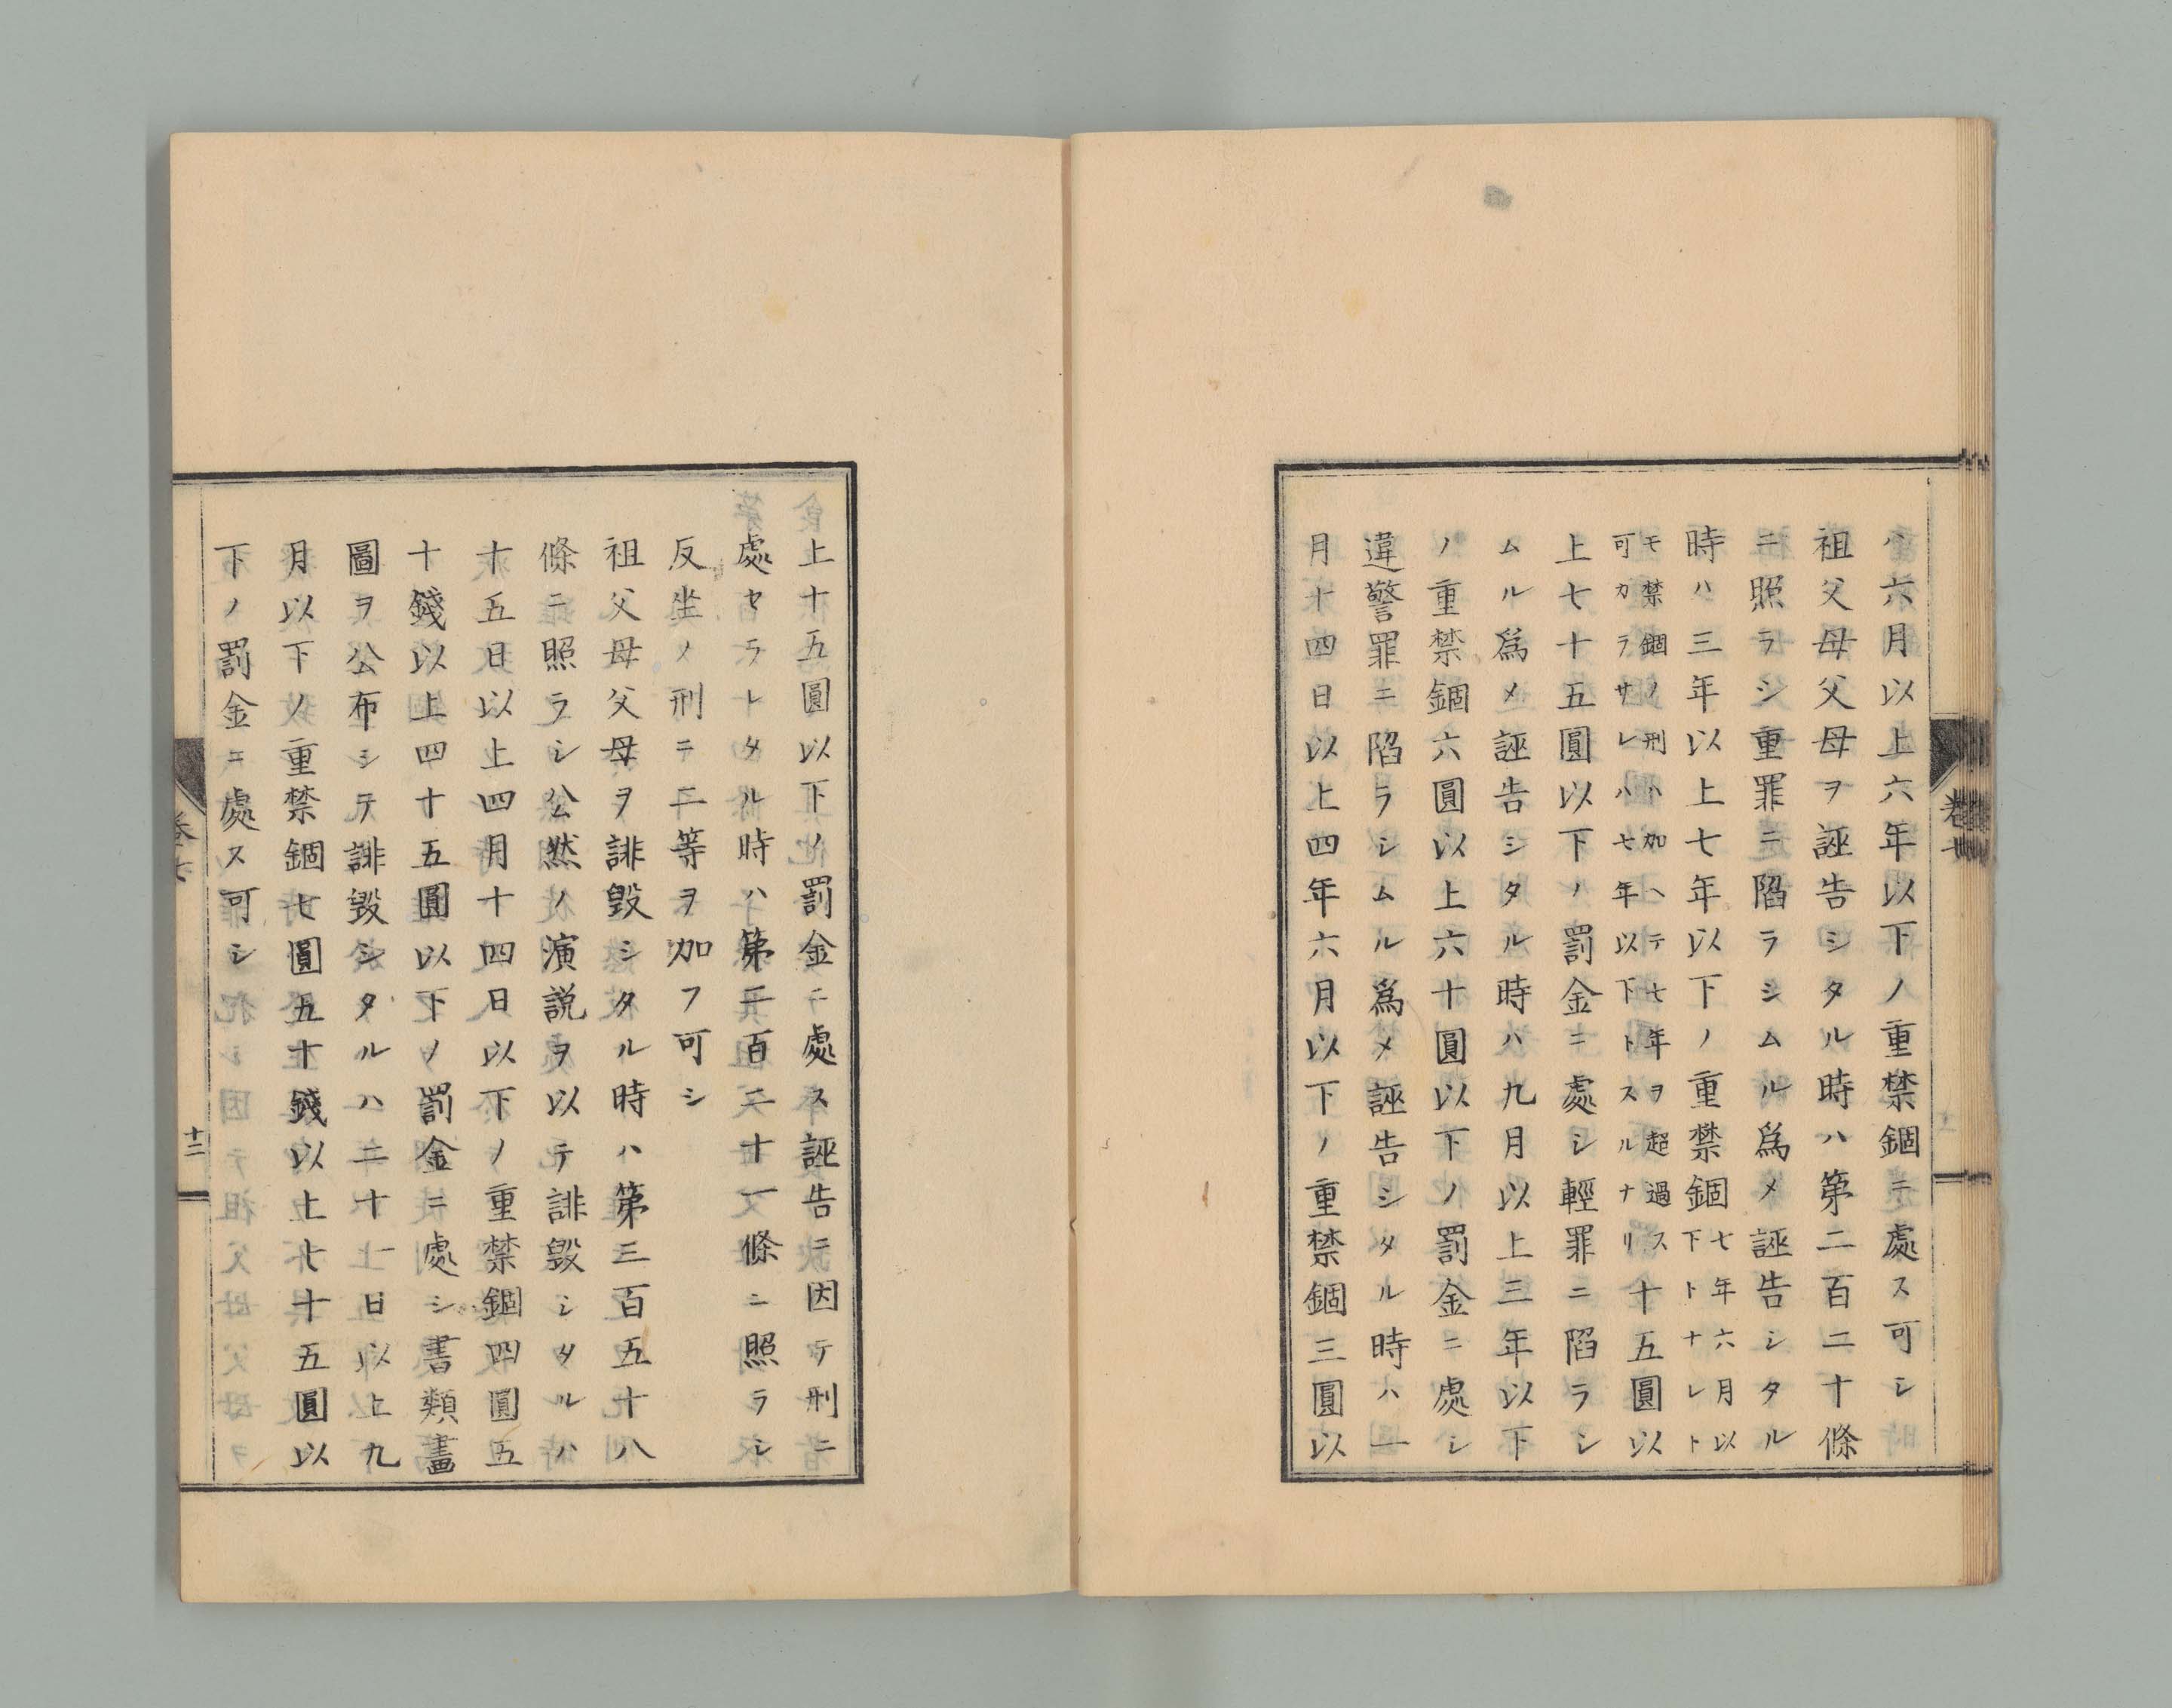 ハ六月以上六年以下ノ重禁錮ニ處ス可シ
祖父母父母ヲ誣告シタル時ハ第二百二十條
ニ照ラシ重罪ニ陷ラシムル爲メ誣告シタル
時ハ三年以上七年以下ノ重禁錮
七年六月以
下トナレト
モ禁錮ノ刑ハ加ヘテ七年ヲ超過ス
可カラサレハ七年以下トスルナリ
十五圓以
上七十五圓以下ノ罰金ニ處シ輕罪ニ陷ラシ
ムル爲メ誣告シタル時ハ九月以上三年以下
ノ重禁錮六圓以上六十圓以下ノ罰金ニ處シ
違警罪ニ陷ラシムル爲メ誣告シタル時ハ一
月十四日以上四年六月以下ノ重禁錮三圓以
上十五圓以下ノ罰金ニ處ス誣告ニ因テ刑ニ
處セラレタル時ハ第二百二十一條ニ照ラシ
反坐ノ刑ニ二等ヲ加フ可シ
祖父母父母ヲ誹毀シタル時ハ第三百五十八
條ニ照ラシ公然ノ演説ヲ以テ誹毀シタルハ
十五日以上四月十四日以下ノ重禁錮四圓五
十錢以上四十五圓以下ノ罰金ニ處シ書類畫
圖ヲ公布シテ誹毀シタルハ二十一日以上九
月以下ノ重禁錮七圓五十錢以上七十五圓以
下ノ罰金ニ處ス可シ
卷七
十二